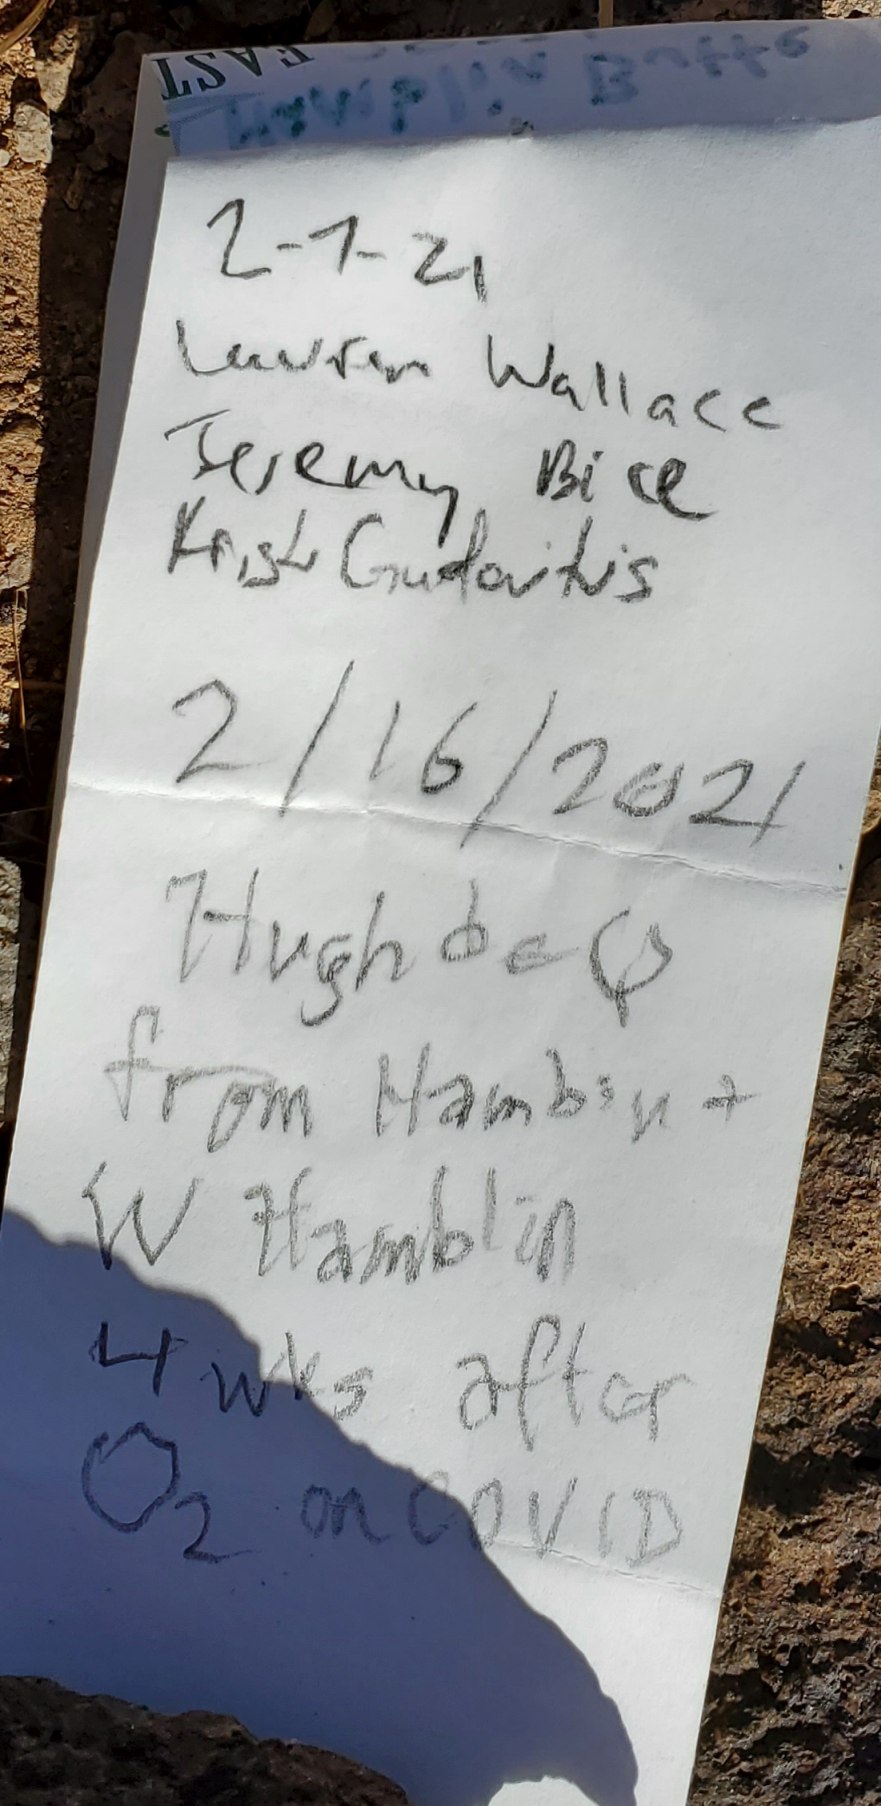 EAST
Hamblin Butte
2-7-21
Lauren Wallace
Jeremy Bice
Kristi Gudaitis
2/16/2021
Hugh de Q
from Hamblin +
W Hamblin
4 wks after
O2 on COVID